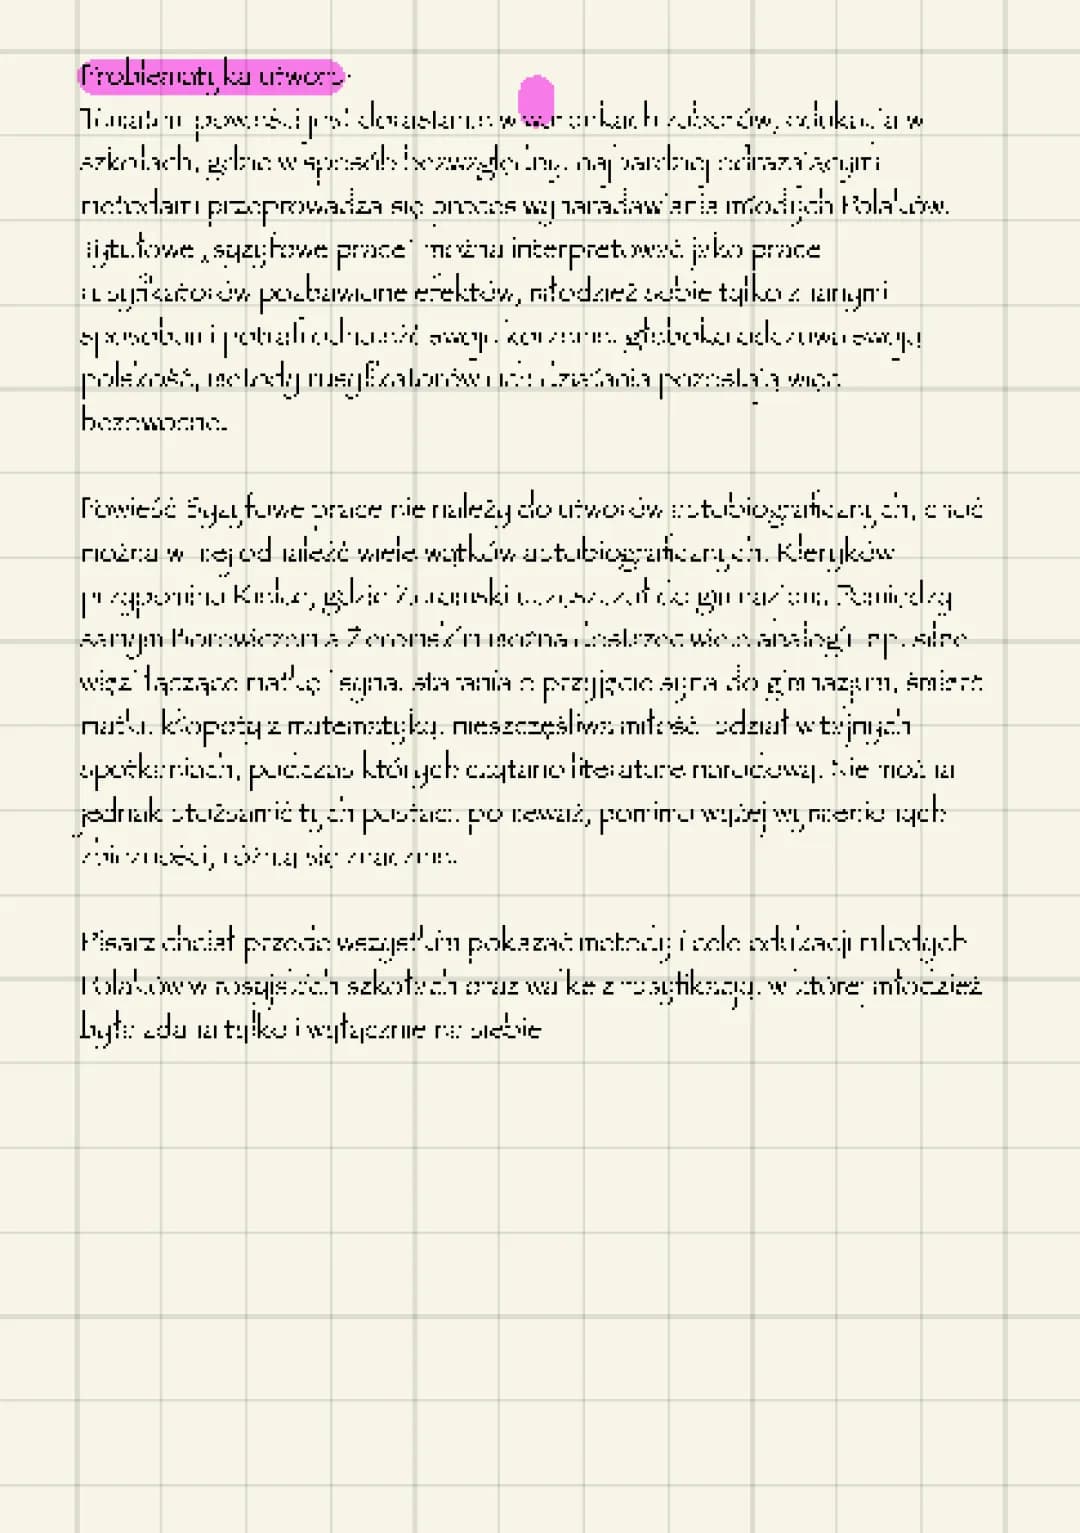 Problematyka utworu
Tematem powieści jest dorastanie w warunkach zaborów, edukacja w
szkołach, gdzie w sposób bezwzględny, najbardziej odrażającymi
metodami przeprowadza się proces wynaradawiania młodych Polaków.
Tytułowe „syzyfowe prace" można interpretować jako prace
rusyfikatorów pozbawione efektów, młodzież sobie tylko znanymi
sposobami potrafi odnaleźć swoje korzenie, głęboko odczuwa swoją
polskość, metody rusyfikatorów i ich działania pozostają więc
bezowocne.
Powieść Syzyfowe prace nie należy do utworów autobiograficznych, choć
można w niej odnaleźć wiele wątków autobiograficznych. Kleryków
przypomina Kielce, gdzie Żeromski uczęszczał do gimnazjum. Pomiędzy
samym Borowiczem a Żeromskim można dostrzec wiele analogii np. silne
więzi łączące matkę i syna, starania o przyjęcie syna do gimnazjum, śmierć
matki, kłopoty z matematyką, nieszczęśliwa miłość, udział w tajnych
spotkaniach, podczas których czytano literaturę narodową. Nie można
jednak utożsamić tych postaci, ponieważ, pomimo wyżej wymienionych
zbieżności, różnią się znacznie.
Pisarz chciał przede wszystkim pokazać metody i cele edukacji młodych
Polaków w rosyjskich szkołach oraz walkę z rusyfikacją, w której młodzież
była zdana tylko i wyłącznie na siebie